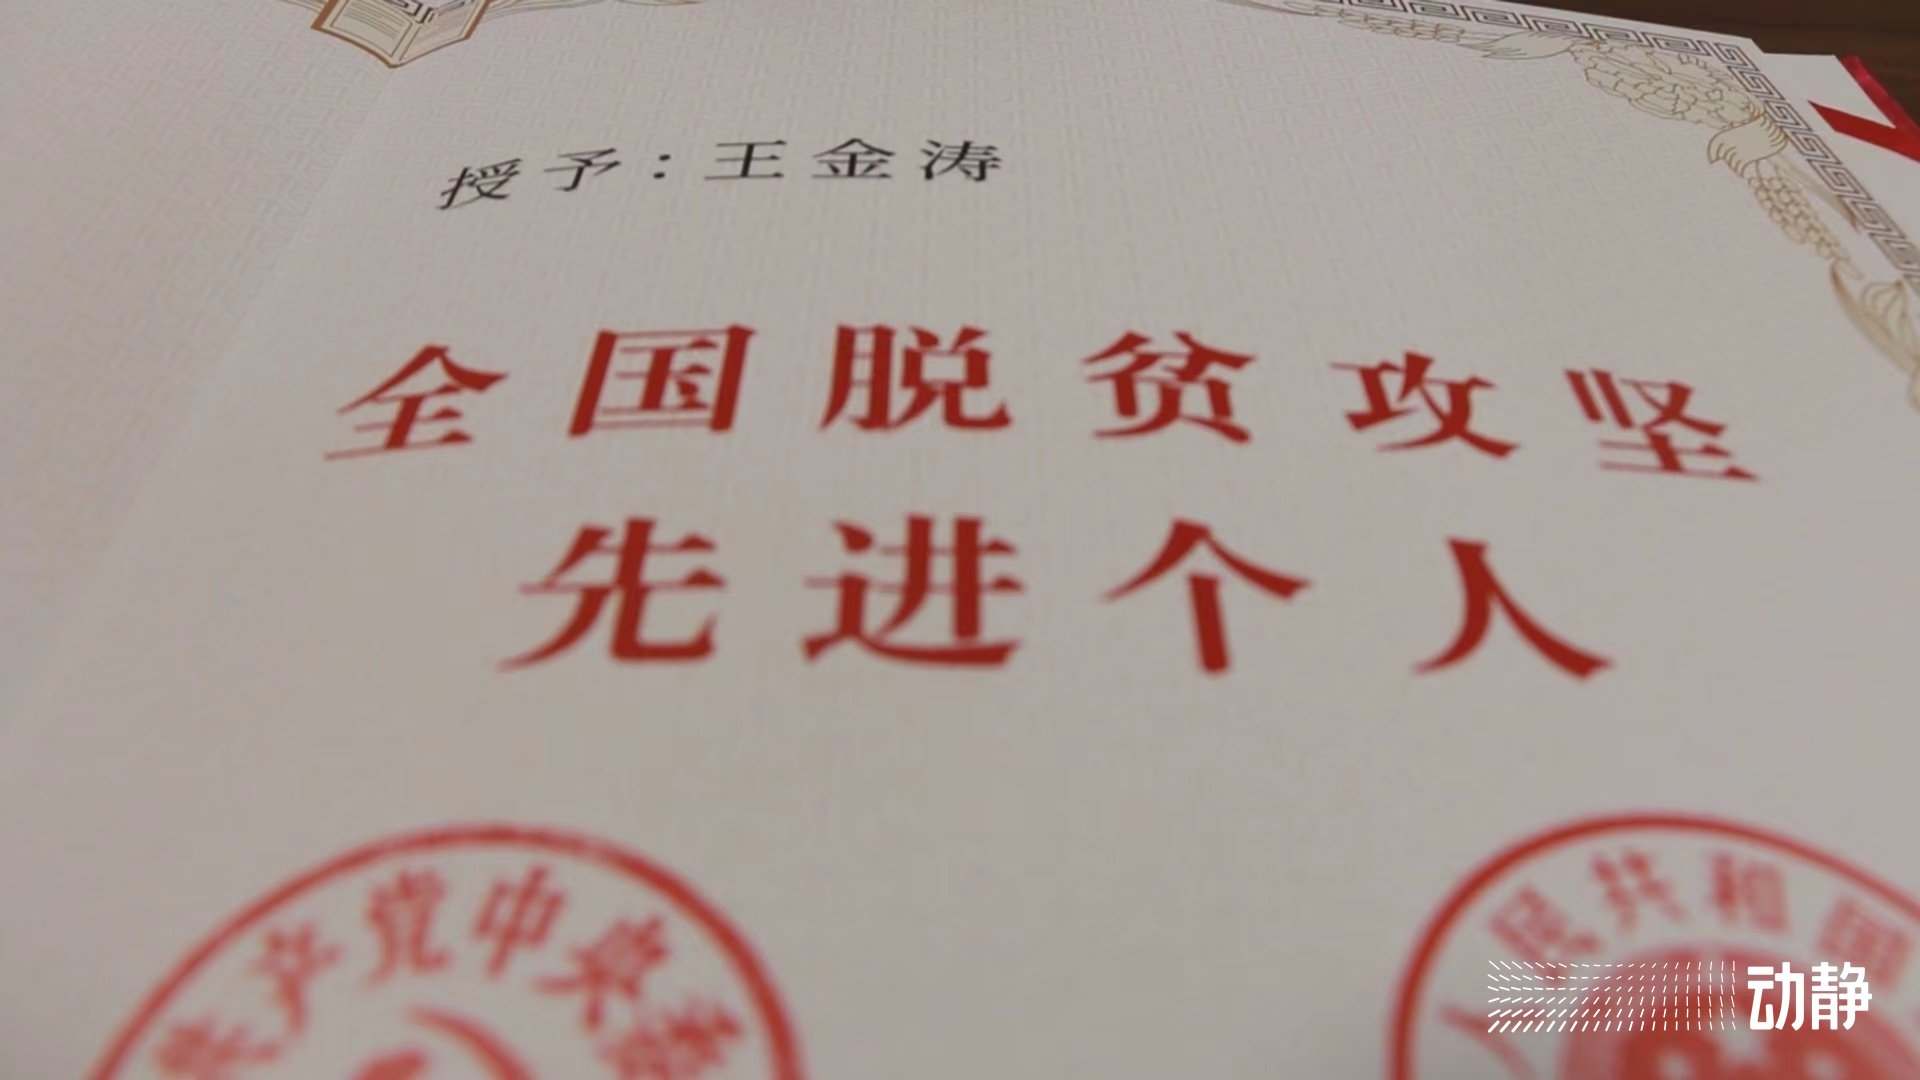 授予：王金涛
全国脱贫攻坚
先进个人
共产党中央委
人民共和国
动静